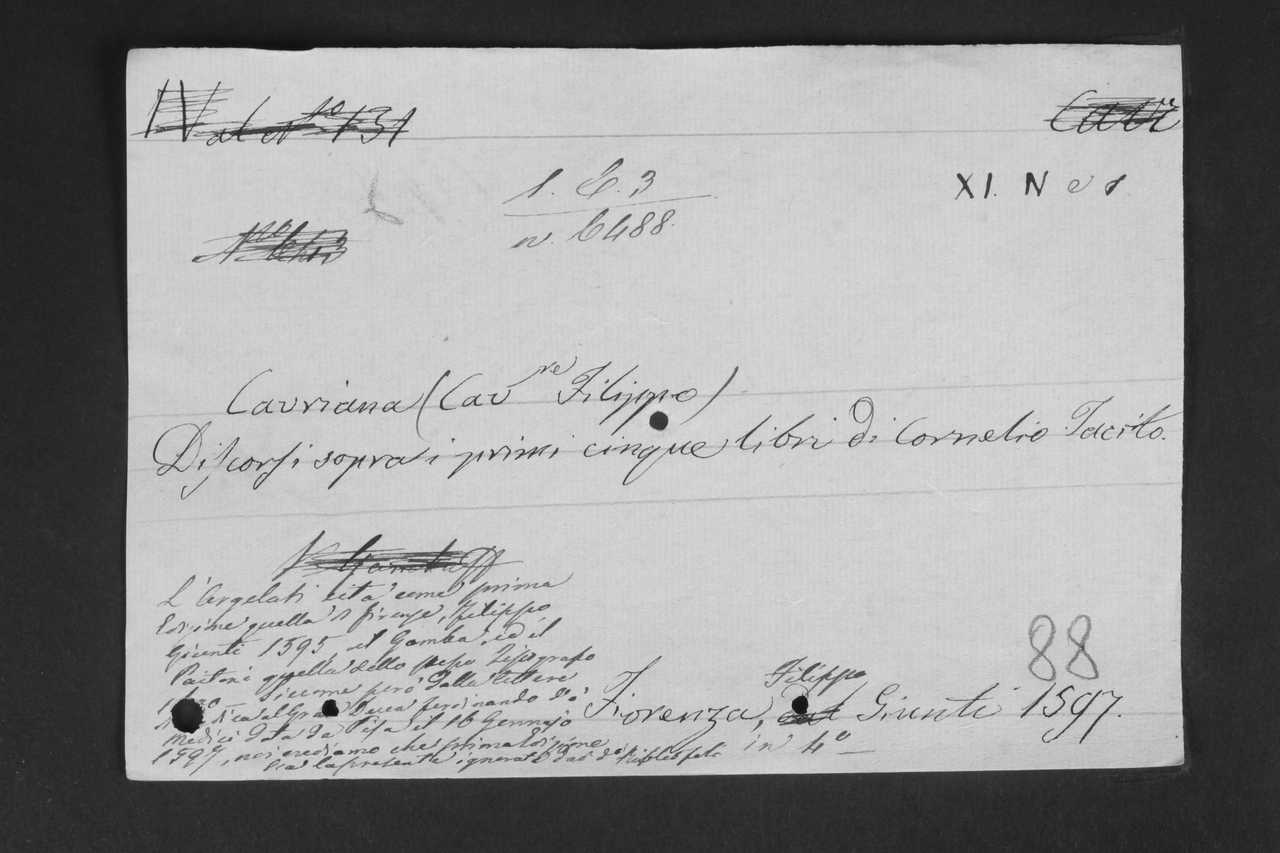 IV 131
Cav
1. C. 3
XI. N e 1
n. 6488.
Cavriana (Cav.re Filippo)
Discorsi sopra i primi cinque libri di Cornelio Tacito.
L'Argelati cita come prima
Edizione quella di Firenze, Filippo
Giunti 1595 il Gamba, ed il
Paitoni quella dello stesso Tipografo
siccome però dalla lettera
al Gran Duca Ferdinando de'
Medici data da Pisa il 16 Gennajo
1597, noi crediamo che prima Edizione
sia la presente ignorata dai Bibliofili
88
Filippo
Fiorenza, Giunti 1597.
in 4°